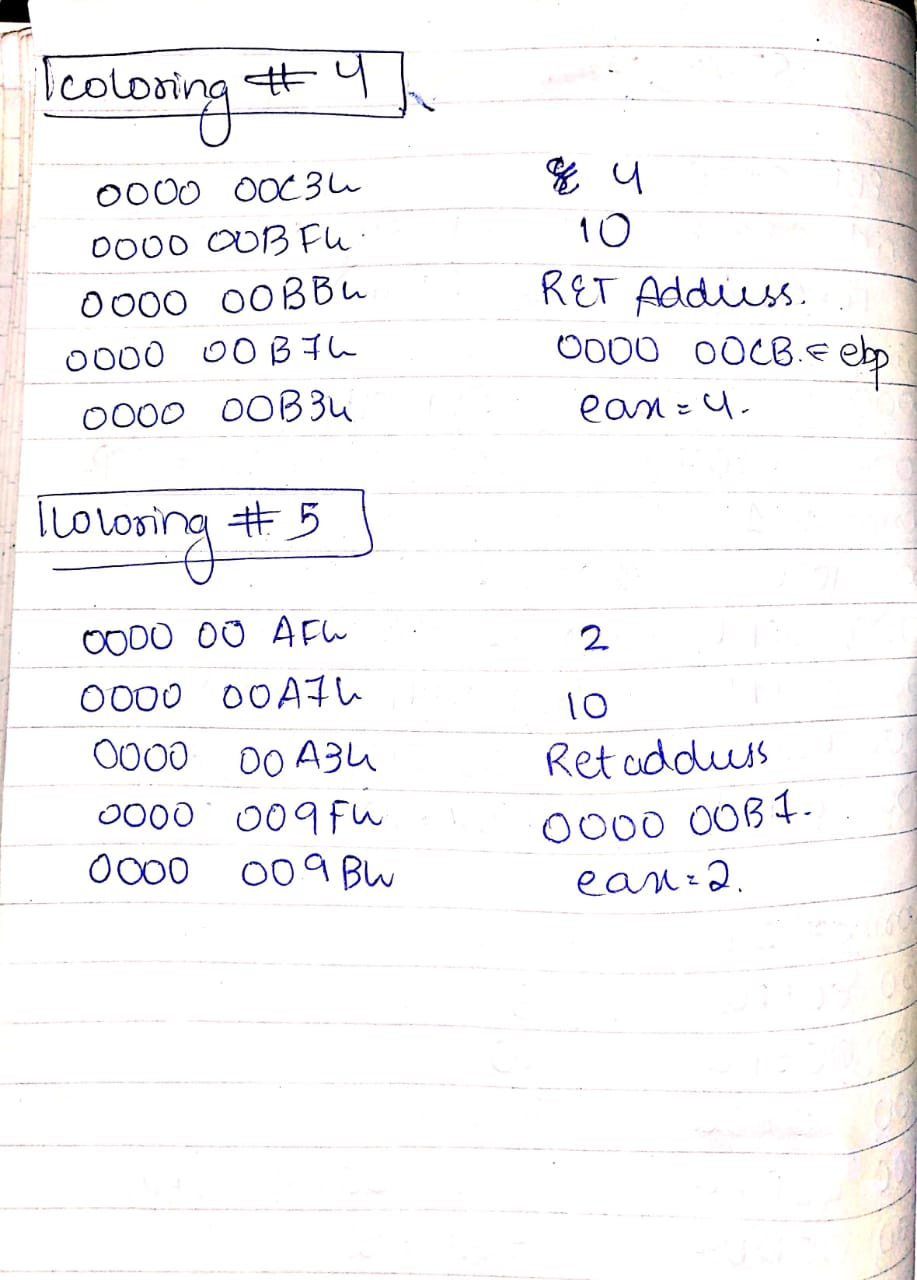 coloring # 4
0000 00C3h 4
0000 00BFh 10
0000 00BBh RET Address.
0000 00B7h 0000 00CB. = ebp
0000 00B3h eax = 4.
Coloring # 5
0000 00 AFh 2
0000 00A7h 10
0000 00A3h Ret address
0000 009Fh 0000 00B7.
0000 009Bh eax = 2.